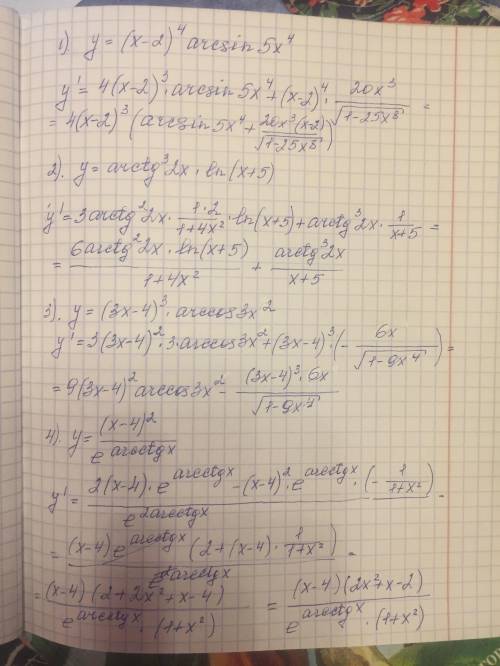 1). y = (x-2)⁴ arcsin 5x⁴
y' = 4(x-2)³ · arcsin 5x⁴ + (x-2)⁴ · 20x³/√(1-25x⁸) =
= 4(x-2)³ (arcsin 5x⁴ + 20x³(x-2)/√(1-25x⁸))
2). y = arctg³2x · ln(x+5)
y' = 3arctg²2x · 1·2/(1+4x²) · ln(x+5) + arctg³2x · 1/(x+5) =
= 6arctg²2x · ln(x+5)/(1+4x²) + arctg³2x/(x+5)
3). y = (3x-4)³ · arccos3x²
y' = 3(3x-4)² · 3 · arccos3x² + (3x-4)³ · (- 6x/√(1-9x⁴)) =
= 9(3x-4)² arccos3x² - (3x-4)³ · 6x/√(1-9x⁴)
4). y = (x-4)²/e^(arcctgx)
y' = (2(x-4) · e^(arcctgx) - (x-4)² · e^(arcctgx) · (- 1/(1+x²)))/e^(2arcctgx) =
= (x-4)e^(arcctgx) (2 + (x-4) · 1/(1+x²))/e^(2arcctgx) =
= (x-4)(2+2x²+x-4)/(e^(arcctgx) · (1+x²)) = (x-4)(2x²+x-2)/(e^(arcctgx) · (1+x²))